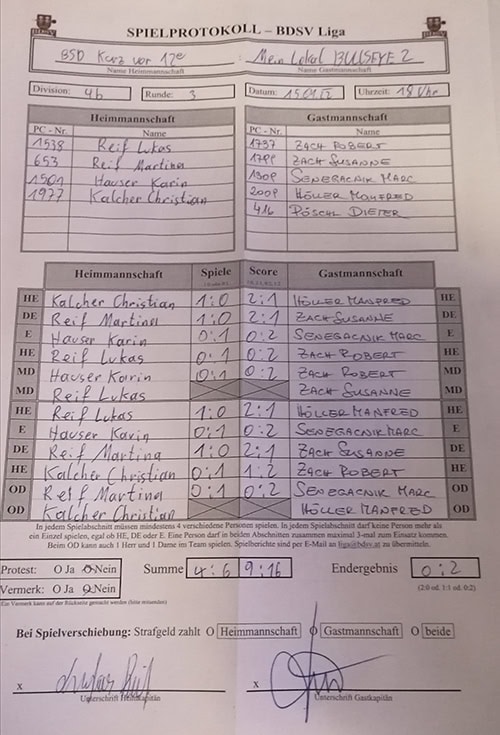 SPIELPROTOKOLL – BDSV Liga
BSD Kurz vor 12e : Mein Lokal BULLSEYE 2
Name Heimmannschaft Name Gastmannschaft
Division: 4b Runde: 3 Datum: Uhrzeit: 18 Uhr
Heimmannschaft Gastmannschaft
PC - Nr. Name PC - Nr. Name
1538 Reif Lukas 1737 ZACH ROBERT
653 Reif Martina 1799 ZACH SUSANNE
1501 Hauser Karin 1309 SENEGACNIK MARC
1977 Kalcher Christian 2009 HÖLLER MANFRED
416 PÖSCHL DIETER
Heimmannschaft Spiele Score Gastmannschaft
HE Kalcher Christian 1:0 2:1 HÖLLER MANFRED HE
DE Reif Martina 1:0 2:1 ZACH SUSANNE DE
E Hauser Karin 0:1 0:2 SENEGACNIK MARC E
HE Reif Lukas 0:1 0:2 ZACH ROBERT HE
MD Hauser Karin 0:1 0:2 ZACH ROBERT MD
MD Reif Lukas ZACH SUSANNE MD
HE Reif Lukas 1:0 2:1 HÖLLER MANFRED HE
E Hauser Karin 0:1 0:2 SENEGACNIK MARC E
DE Reif Martina 1:0 2:1 ZACH SUSANNE DE
HE Kalcher Christian 0:1 1:2 ZACH ROBERT HE
OD Reif Martina 0:1 0:2 SENEGACNIK MARC OD
OD Kalcher Christian HÖLLER MANFRED OD
In jedem Spielabschnitt müssen mindestens 4 verschiedene Personen spielen. In jedem Spielabschnitt darf keine Person mehr als
ein Einzel spielen, egal ob HE, DE oder E. Eine Person darf in beiden Abschnitten zusammen maximal 3-mal zum Einsatz kommen.
Beim OD kann auch 1 Herr und 1 Dame im Team spielen. Spielberichte sind per E-Mail an liga@bdsv.at zu übermitteln.
Protest: O Ja O Nein Summe 4:6 9:16 Endergebnis 0:2
Vermerk: O Ja O Nein (2:0 od. 1:1 od. 0:2)
Ein Vermerk kann auf der Rückseite gemacht werden (bitte ankreuzen)
Bei Spielverschiebung: Strafgeld zahlt O Heimmannschaft O Gastmannschaft O beide
x x
Unterschrift Heimkapitän Unterschrift Gastkapitän